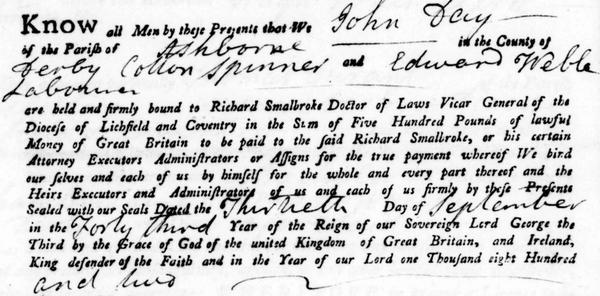 KNOW all Men by these Presents that We John Day
of the Parish of Ashborne in the County of
Derby Cotton Spinner and Edward Webbe
Labourer
are held and firmly bound to Richard Smalbroke Doctor of Laws Vicar General of the
Diocese of Lichfield and Coventry in the Sum of Five Hundred Pounds of lawful
Money of Great Britain to be paid to the said Richard Smalbroke, or his certain
Attorney Executors Administrators or Assigns for the true payment whereof We bind
our selves and each of us by himself for the whole and every part thereof and the
Heirs Executors and Administrators of us and each of us firmly by these Presents
Sealed with our Seals Dated the Thirtieth Day of September
in the Forty third Year of the Reign of our Sovereign Lord George the
Third by the Grace of God of the united Kingdom of Great Britain, and Ireland,
King defender of the Faith and in the Year of our Lord one Thousand eight Hundred
and two